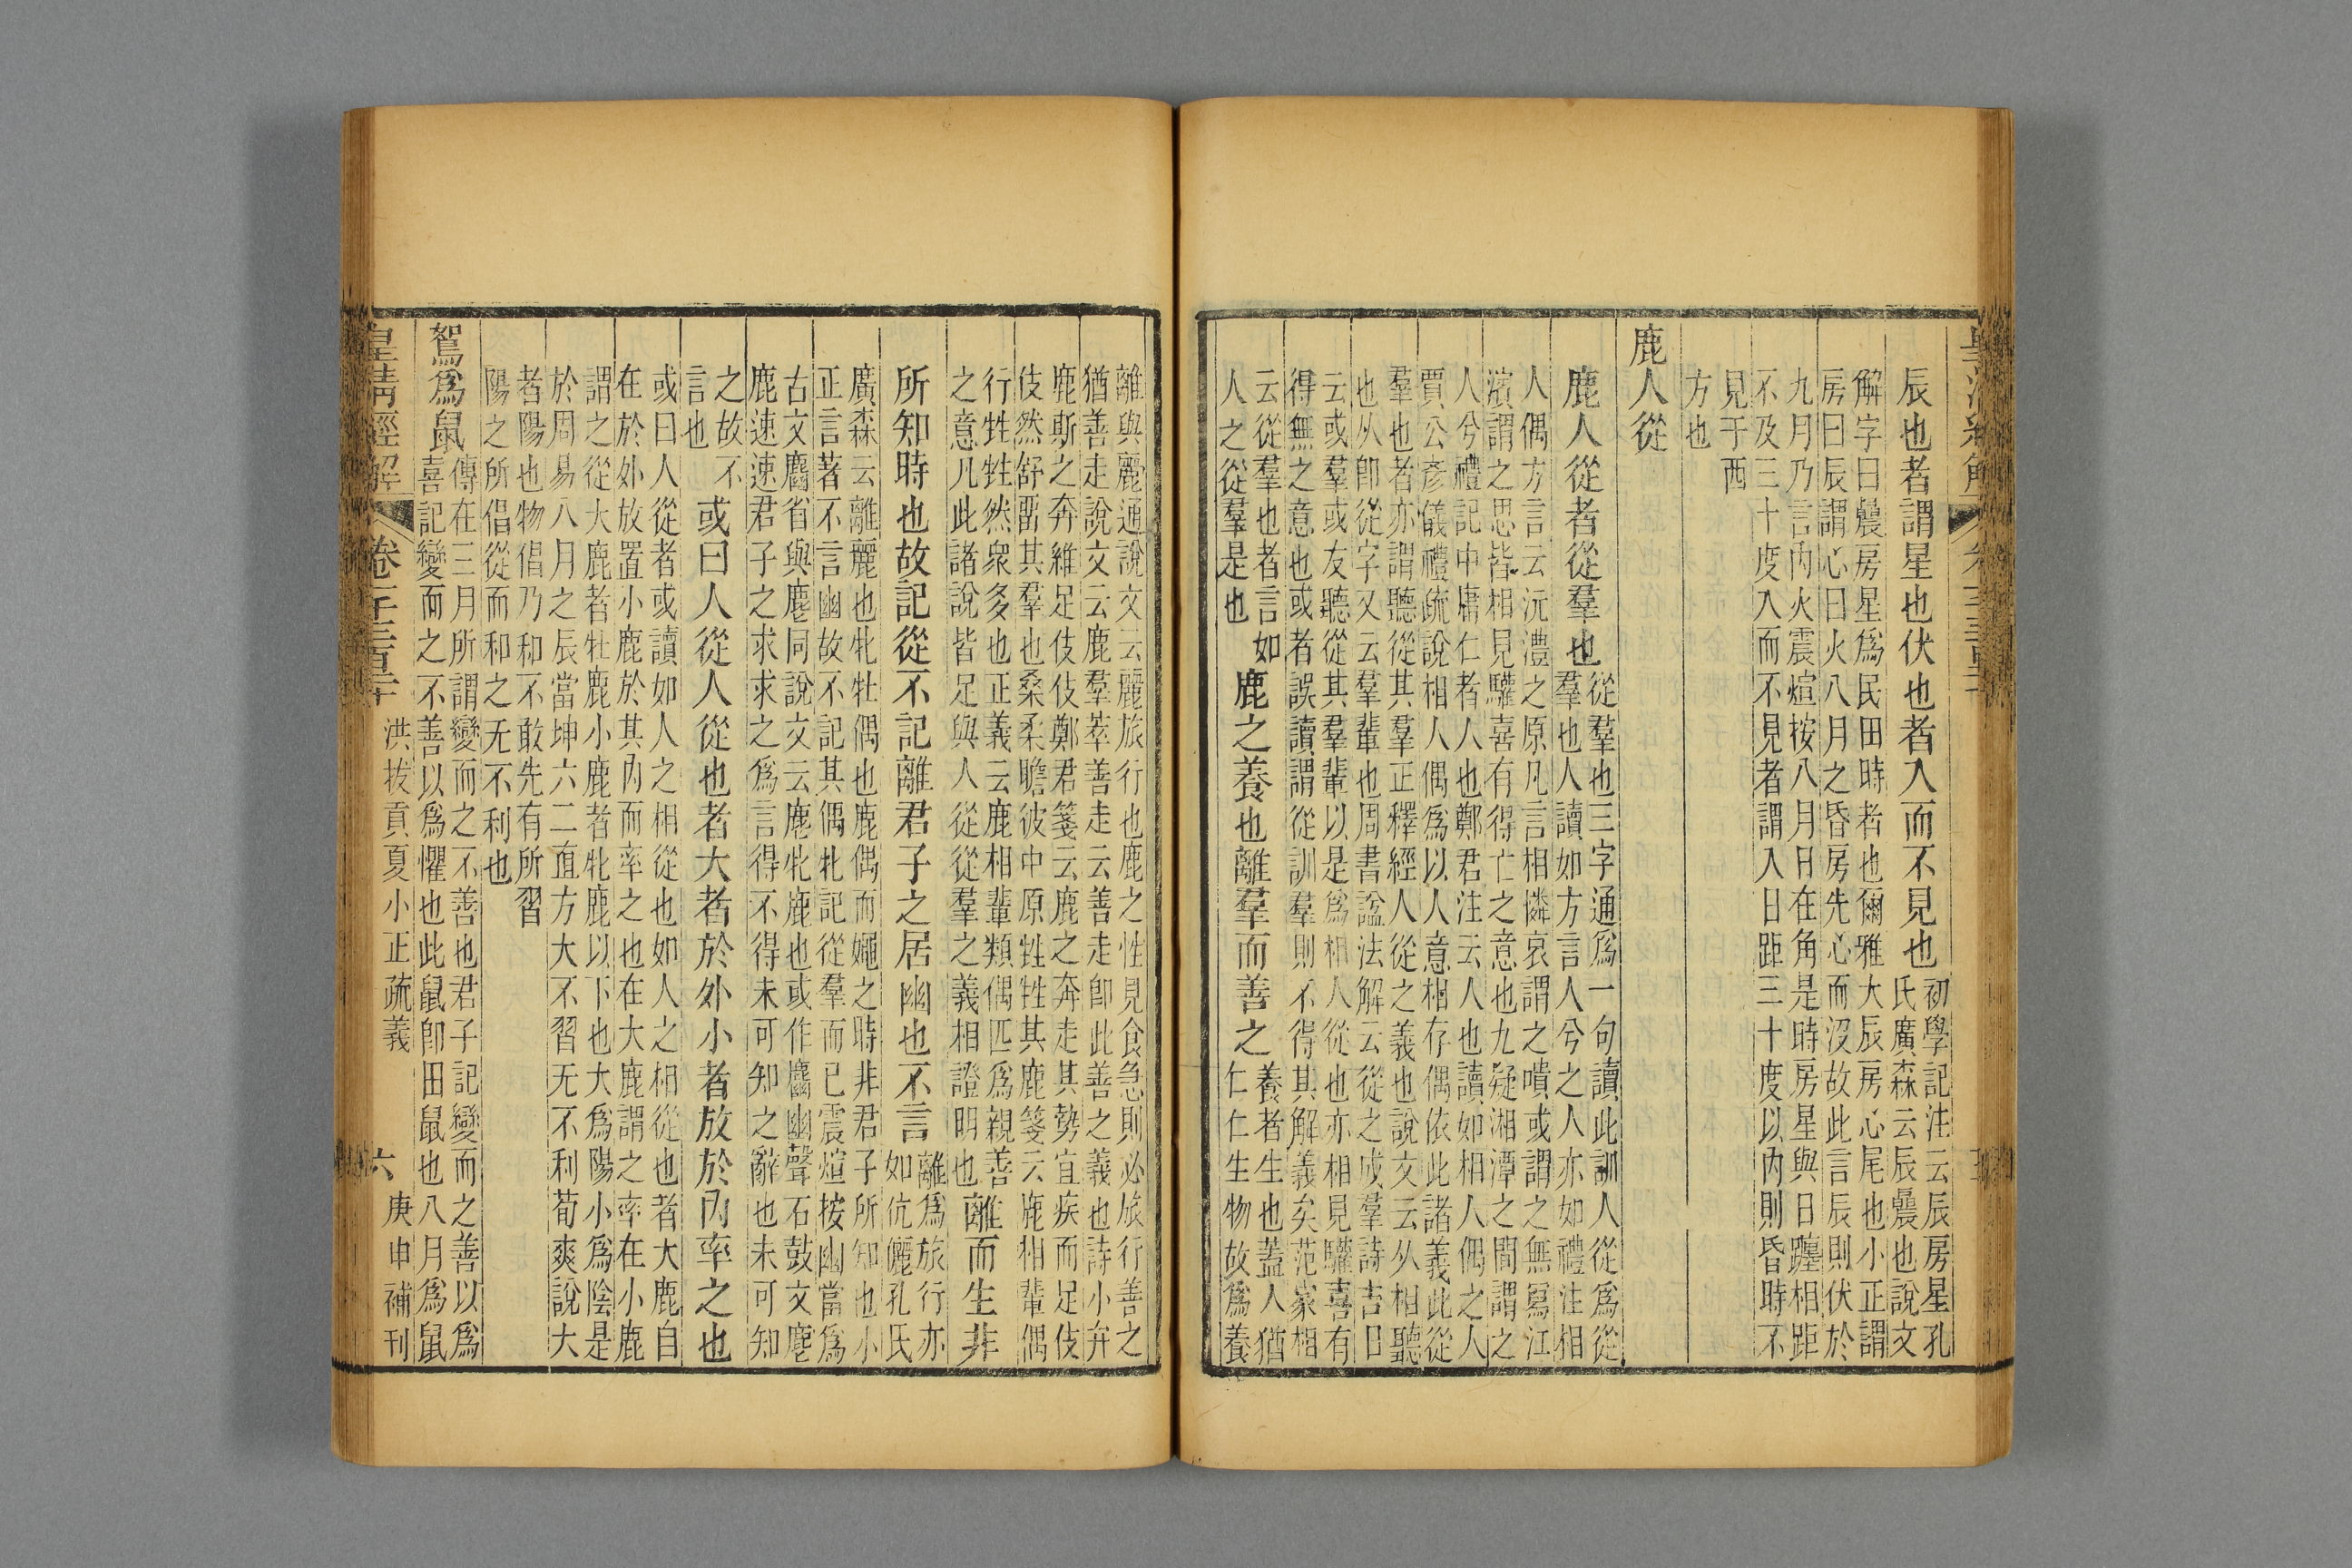 辰也者謂星也伏也者入而不見也
初學記注云辰房星孔
氏廣森云辰曟也說文
解字曰曟房星爲民田時者也爾雅大辰房心尾也小正謂
房曰辰謂心曰火八月之昏房先心而沒故此言辰則伏於
九月乃言內火震煊按八月日在角是時房星與日躔相距
不及三十度入而不見者謂入日距三十度以內則昏時不
見于西
方也
鹿人從
鹿人從者從羣也
從羣也三字通爲一句讀此訓人從爲從
羣也人讀如方言人兮之人亦如禮注相
人偶方言云沅澧之原凡言相憐哀謂之嘳或謂之無寫江
濱謂之思皆相見驩喜有得亡之意也九疑湘潭之間謂之
人兮禮記中庸仁者人也鄭君注云人也讀如相人偶之人
賈公彥儀禮疏說相人偶爲以人意相存偶依此諸義此從
羣也者亦謂聽從其羣正釋經人從之義也說文云从相聽
也从卽從字又云羣輩也周書諡法解云從之成羣詩吉日
云或羣或友聽從其羣輩以是爲相人從也亦相見驩喜有
得無之意也或者誤讀謂從訓羣則不得其解義矣范家相
云從羣也者言如
人之從羣是也
鹿之養也離羣而善之
養者生也蓋人猶
仁仁生物故爲養
離與麗通說文云麗旅行也鹿之性見食急則必旅行善之
猶善走說文云鹿羣萃善走云善走卽此善之義也詩小弁
鹿斯之奔維足伎伎鄭君箋云鹿之奔走其勢宜疾而足伎
伎然舒畱其羣也桑柔瞻彼中原甡甡其鹿箋云鹿相輩偶
行甡甡然衆多也正義云鹿相輩類偶匹爲親善
之意凡此諸說皆足與人從從羣之義相證明也
離而生非
所知時也故記從不記離君子之居幽也不言
離爲旅行亦
如伉儷孔氏
廣森云離麗也牝牡偶也鹿偶而㛴之時非君子所知也小
正言著不言幽故不記其偶牝記從羣而已震煊按幽當爲
古文麀省與麀同說文云麀牝鹿也或作麀幽聲石鼓文麀
鹿速速君子之求求之爲言得不得未可知之辭也未可知
之故不
言也
或曰人從人從也者大者於外小者放於內率之也
或曰人從者或讀如人之相從也如人之相從也者大鹿自
在於外放置小鹿於其內而率之也在大鹿謂之率在小鹿
謂之從大鹿者牡鹿小鹿者牝鹿以下也大爲陽小爲陰是
於周易八月之辰當坤六二直方大不習无不利荀爽說大
者陽也物倡乃和不敢先有所習
陽之所倡從而和之无不利也
鴽爲鼠
傳在三月所謂變而之不善也君子記變而之善以爲
喜記變而之不善以爲懼也此鼠卽田鼠也八月爲鼠
皇淸經解
卷一千三百三十
洪拔貢夏小正疏義
六
庚申補刊